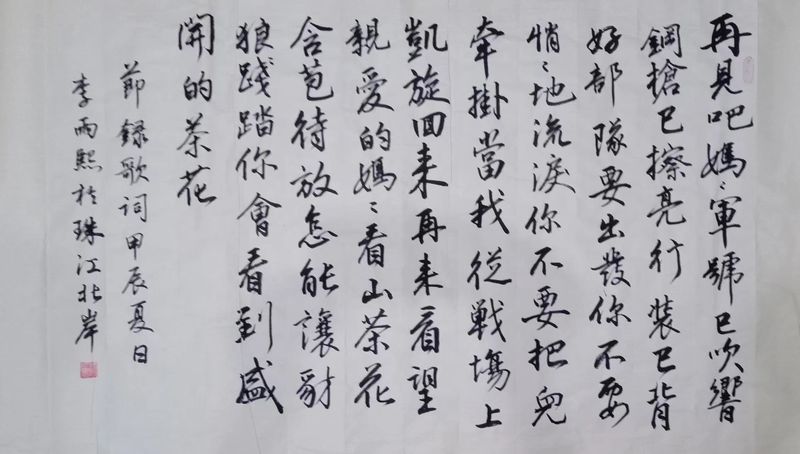 再見吧媽〻軍號已吹響
鋼槍已擦亮行裝已背
好部隊要出發你不要
悄〻地流淚你不要把兒
牽掛當我從戰場上
凱旋回来再来看望
親愛的媽〻看山茶花
含苞待放怎能讓豺
狼踐踏你會看到盛
開的茶花
節録歌詞甲辰夏日
李雨熙於珠江北岸